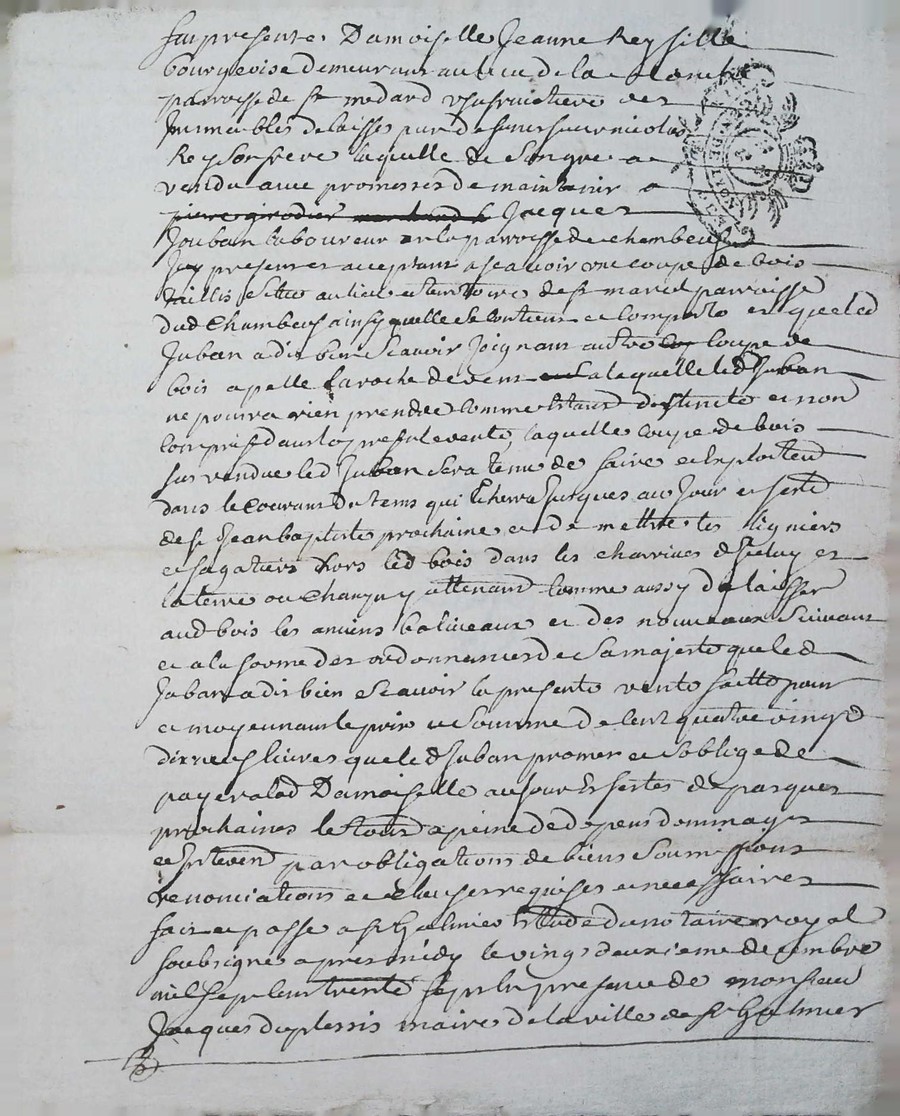 fut presente Damoiselle Jeanne Rey fille
bourgeoise demeurant au lieu de la
parroisse de St medard usufruictiere des
Immeubles delaisses par deffunct sieur nicolas
Rey son frere laquelle de son gre a
vendu avec promesses de maintenir a
pierre girodier marchand Jacques
Jouban laboureur de la parroisse de chambeuf
Icy present et acceptant a scavoir une coupe de bois
taillis situe au lieu et territoire de St marcel parroisse
dud Chambeuf ainsy quelle se contient et comporte et que led
Juban a dit bien scavoir Joignant autre coupe de
bois apelle la roche de vent a laquelle led Juban
ne pourra rien prendre comme estant distincte et non
comprise dans la presente vente, laquelle coupe de bois
sus vendue led Juban sera tenu de faire et Exploiter
dans le courant du tems qui Echerra Jusques au Jour et feste
de St Jean baptiste prochaine et de mettre les ligniers
et fagatiers hors led bois dans les charrieres d'Iceluy et
la terre ou champ y attenant comme aussy de laisser
aud bois les anciens baliveaux et des nouveaux suivant
et a la forme des ordonnances de Sa majesté que led
Juban a dit bien scavoir la presente vente faitte pour
et moyennant le prix et somme de cent quatre vingt
dix neuf livres que led Juban promet et s'oblige de
payer a lad Damoiselle au Jour Et festes de pasques
prochaines le tout a peine de depens dommages
et Interest par obligations de biens soumissions
renonciations et clauses requises et necessaires
fait et passe a St Galmier Etude du notaire royal
soubsigné apres midy le vingt deuxieme decembre
mil sept cent trente sept En presence de monsieur
Jacques duplessis maire de la ville de St Galmier